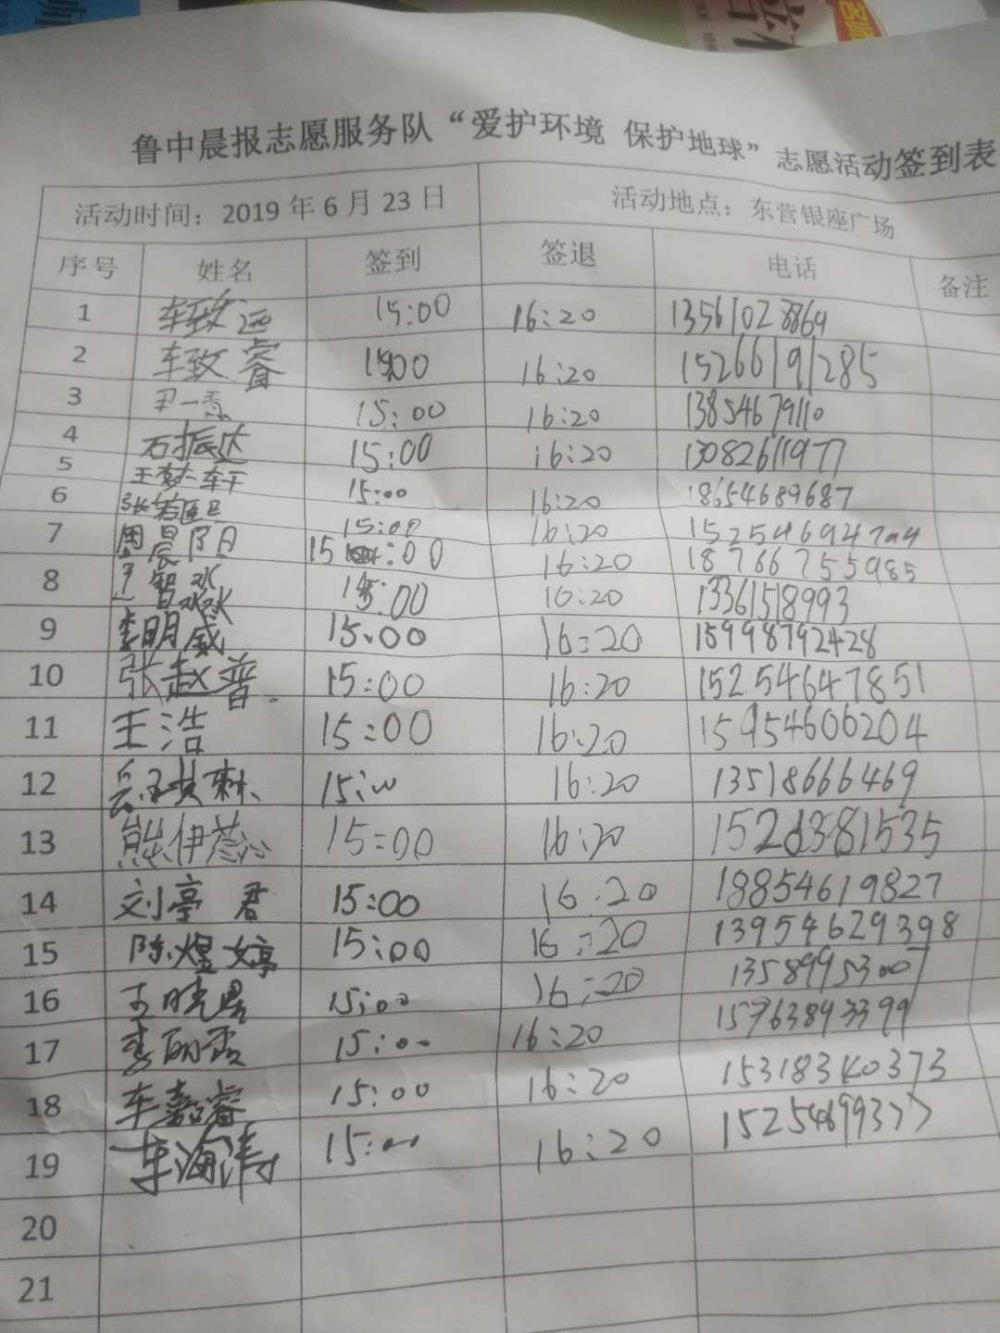 鲁中晨报志愿服务队“爱护环境 保护地球”志愿活动签到表
活动时间：2019年6月23日 活动地点：东营银座广场
序号 姓名 签到 签退 电话 备注
1 车致远 15:00 16:20 13561028864
2 车致睿 15:00 16:20 15266191285
3 尹一 15:00 16:20 13854679110
4 石振达 15:00 16:20 13082611977
5 王梦 15:00 16:20 18654689687
6 张 15:00 16:20
7 周晨阳 15:00 16:20 18766755985
8 15:00 16:20 13361518993
9 李明威 15:00 16:20 15998792428
10 张赵普 15:00 16:20 15254647851
11 王浩 15:00 16:20 15954606204
12 15:00 16:20 13518666469
13 熊伊蕊 15:00 16:20
14 刘亭君 15:00 16:20 18854619827
15 陈煜婷 15:00 16:20 13954629398
16 王晓 15:00 16:20
17 李丽霞 15:00 16:20
18 车嘉睿 15:00 16:20 15318340373
19 车海涛 15:00 16:20
20
21